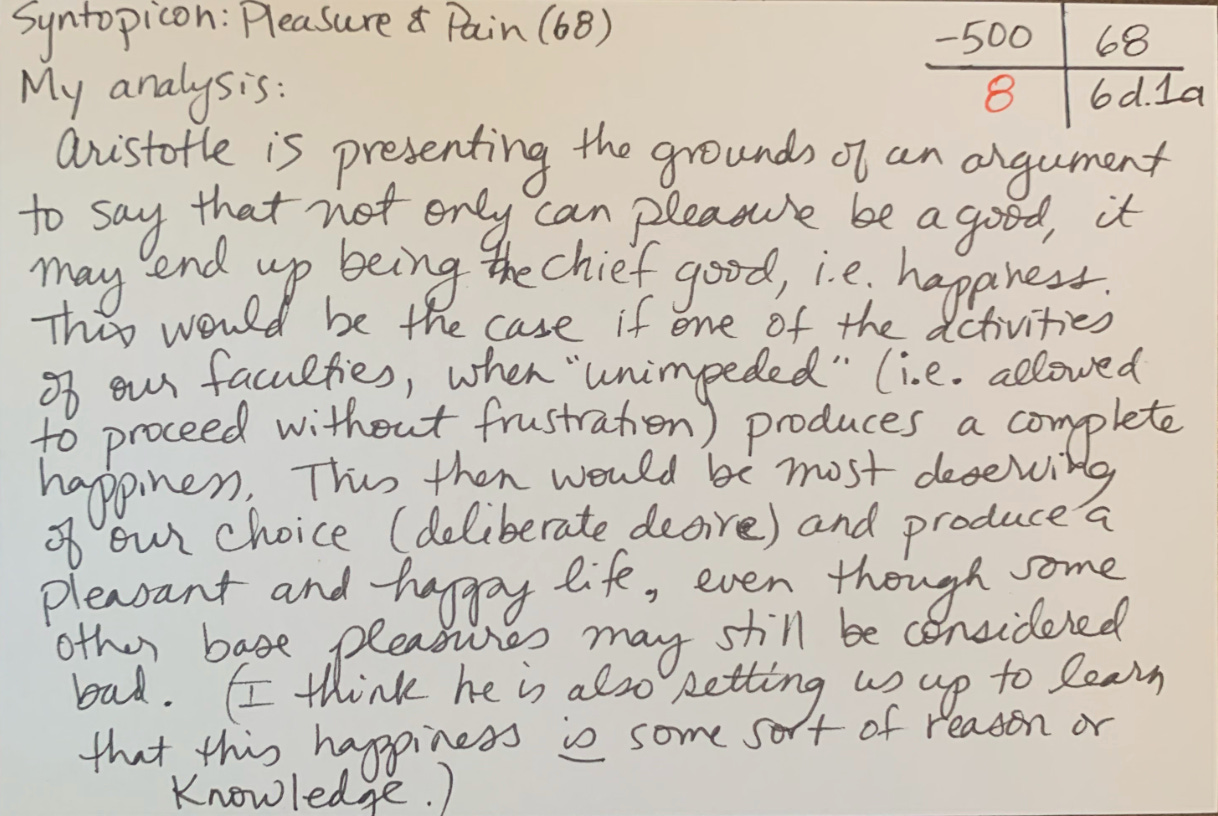 Syntopicon: Pleasure & Pain (68)
-500 68
8 6d.1a
My analysis:
Aristotle is presenting the grounds of an argument
to say that not only can pleasure be a good, it
may end up being the chief good, i.e. happiness.
This would be the case if one of the activities
of our faculties, when "unimpeded" (i.e. allowed
to proceed without frustration) produces a complete
happiness. This then would be most deserving
of our choice (deliberate desire) and produce a
pleasant and happy life, even though some
other base pleasures may still be considered
bad. (I think he is also setting us up to learn
that this happiness is some sort of reason or
Knowledge.)